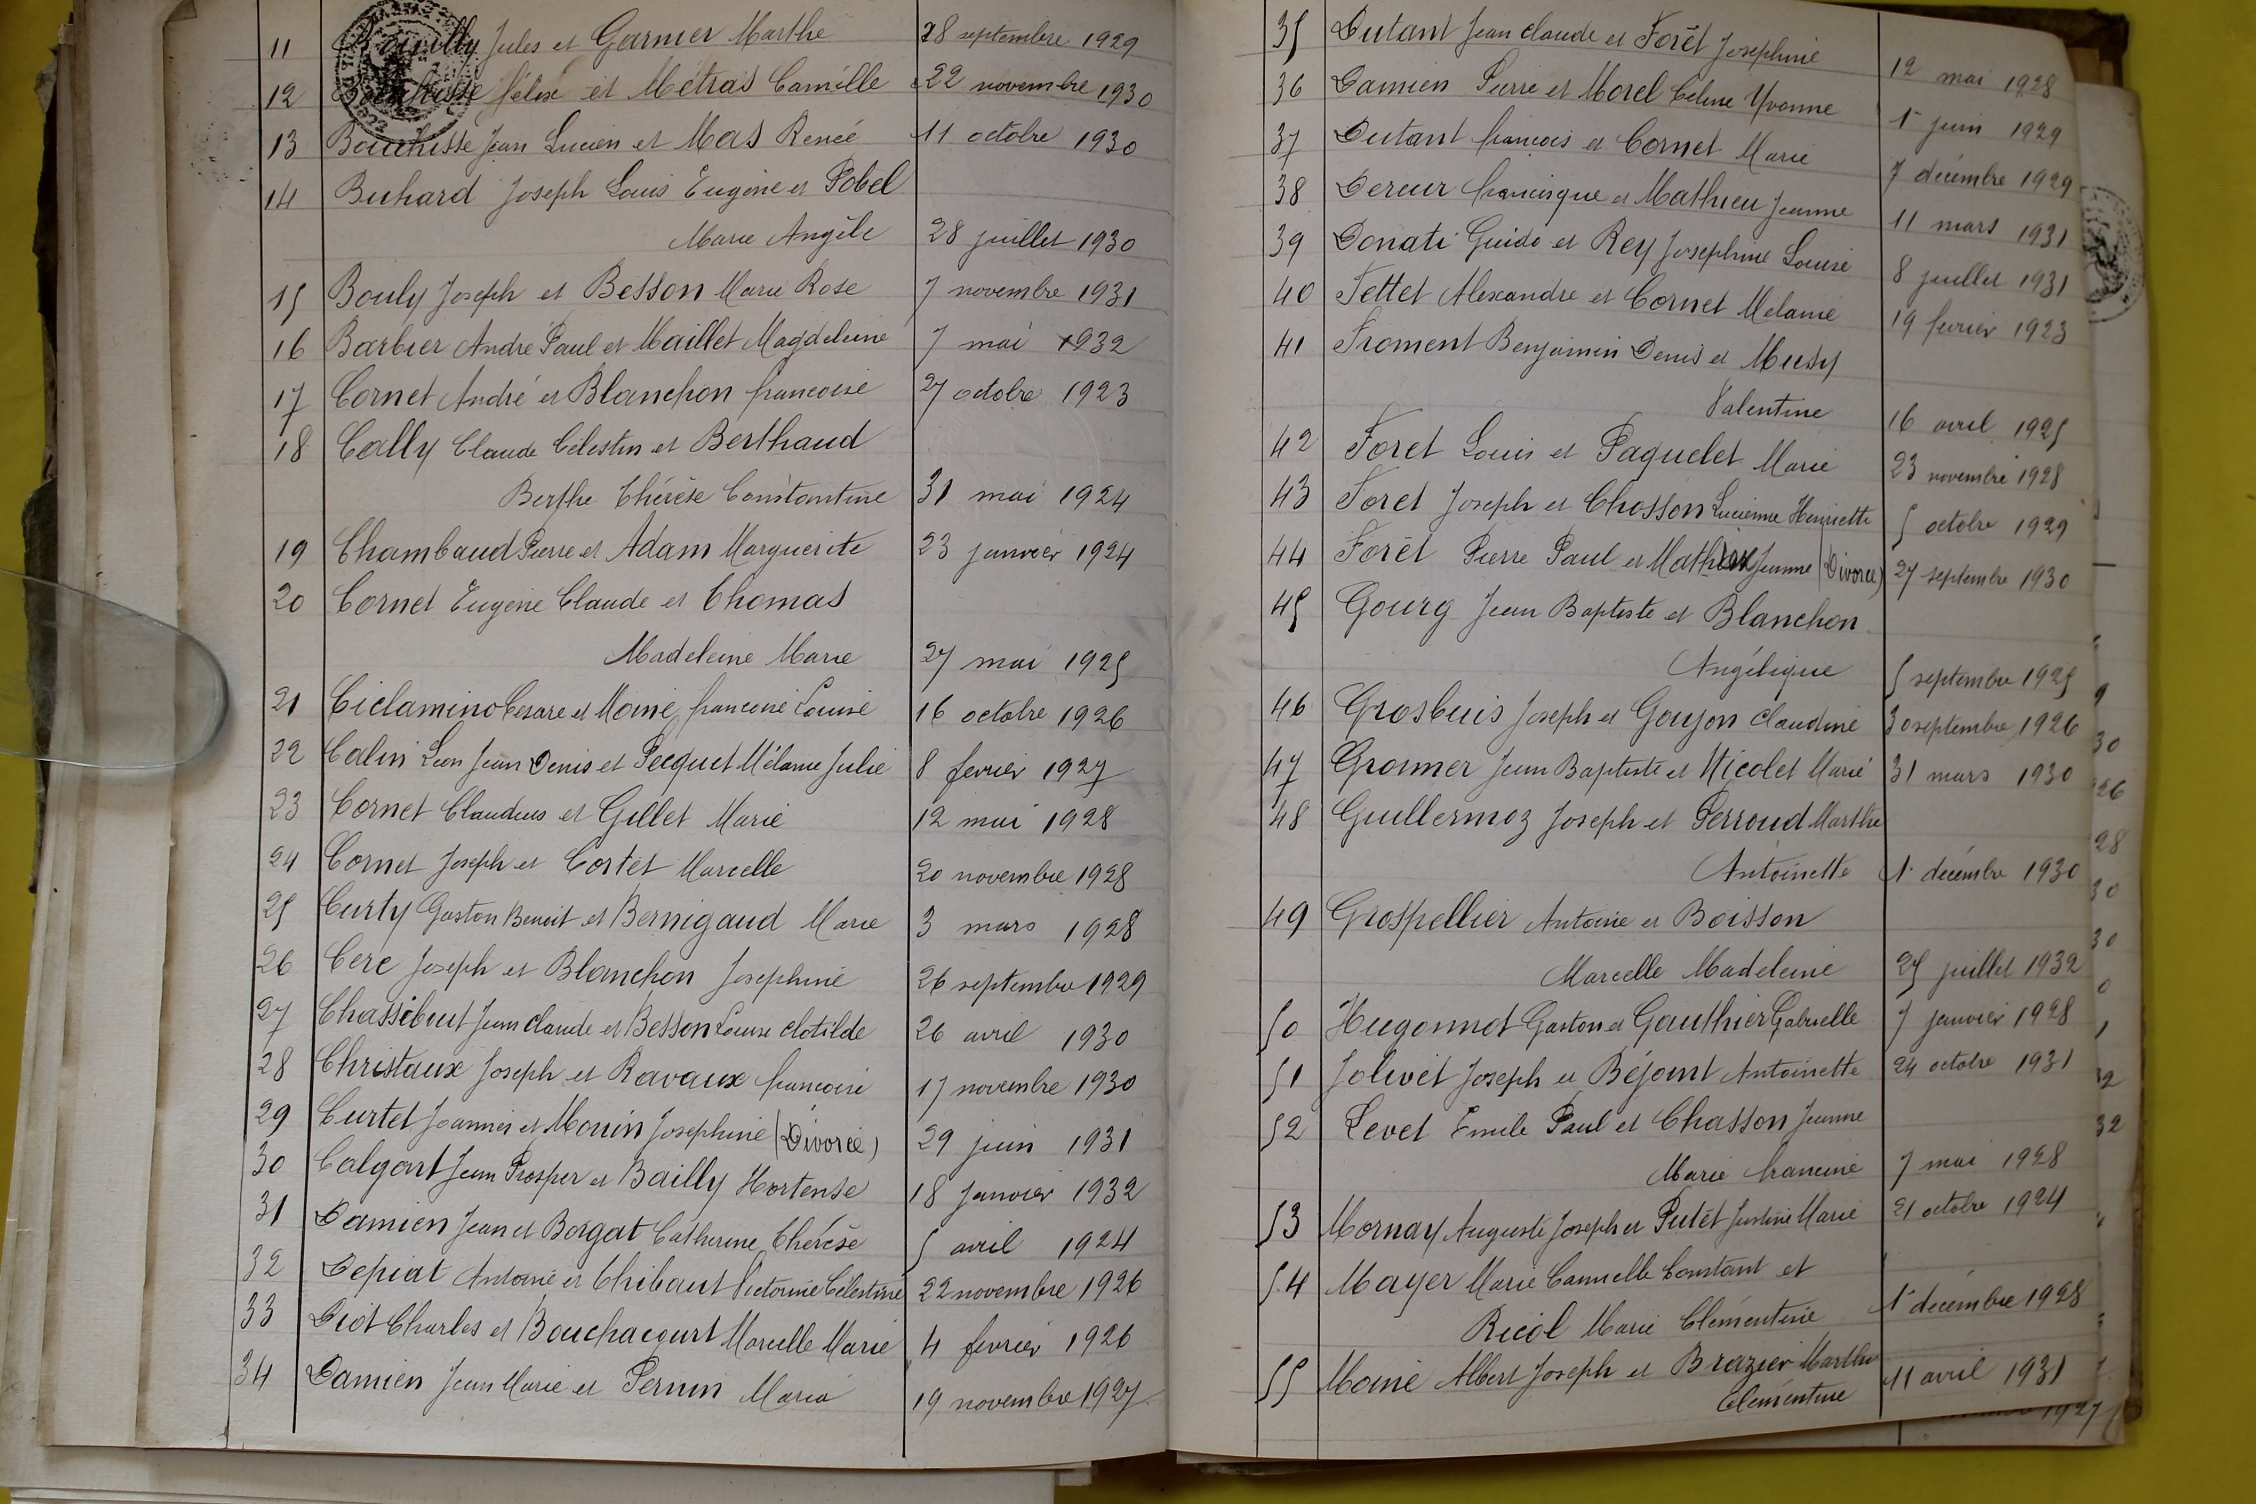 11 Jules et Garnier Marthe 28 septembre 1929
12 Félix et Métras Camille 22 novembre 1930
13 Bouchisse Jean Lucien et Mas Renée 11 octobre 1930
14 Buhard Joseph Louis Eugène et Pobel
Marie Angèle 28 juillet 1930
15 Bouly Joseph et Besson Marie Rose 7 novembre 1931
16 Barbier André Paul et Maillet Magdeleine 7 mai 1932
17 Cornet André et Blanchon françoise 27 octobre 1923
18 Cally Claude Célestin et Berthaud
Berthe Thérèse Constantine 31 mai 1924
19 Chambaud Pierre et Adam Marguerite 23 janvier 1924
20 Cornet Eugène Claude et Thomas
Madeleine Marie 27 mai 1925
21 Ciclamino Cesare et Moine françoise Louise 16 octobre 1926
22 Calin Léon Jean Denis et Pecquet Mélanie Julie 8 fevrier 1927
23 Cornet Claudius et Gillet Marie 12 mai 1928
24 Cornet Joseph et Cortet Marcelle 20 novembre 1928
25 Curty Gaston Benoit et Bernigaud Marie 3 mars 1928
26 Cere Joseph et Blanchon Josephine 26 septembre 1929
27 Chassibout Jean claude et Besson Louise clotilde 26 avril 1930
28 Christaux Joseph et Ravaux françoise 17 novembre 1930
29 Curtet Joannès et Monin Josephine (Divorcé) 29 juin 1931
30 Calgart Jean Prosper et Bailly Hortense 18 janvier 1932
31 Damien Jean et Borgat Catherine Thérèse 5 avril 1924
32 Depiat Antoine et Thibaut Victorine Célestine 22 novembre 1926
33 Diot Charles et Bouchacourt Marcelle Marie 4 fevrier 1926
34 Damien Jean Marie et Pernin Maria 19 novembre 1927
35 Dutant Jean claude et Forêt Josephine 12 mai 1928
36 Damien Pierre et Morel Celine Yvonne 1er juin 1929
37 Dutant françois et Cornet Marie 7 décembre 1929
38 Dereur francisque et Mathieu Jeanne 11 mars 1931
39 Donati Guido et Rey Josephine Louise 8 juillet 1931
40 Fettet Alexandre et Cornet Melanie 19 fevrier 1923
41 Froment Benjamin Denis et Musy
Valentine 16 avril 1925
42 Foret Louis et Paquelet Marie 23 novembre 1928
43 Foret Joseph et Chosson Lucienne Henriette 5 octobre 1929
44 Forêt Pierre Paul et Mathieu Jeanne (Divorcé) 27 septembre 1930
45 Gourg Jean Baptiste et Blanchon
Angélique 5 septembre 1925
46 Grosbuis Joseph et Goujon claudine 30 septembre 1926
47 Gronner Jean Baptiste et Nicolet Marie 31 mars 1930
48 Guillermoz Joseph et Perroud Marthe
Antoinette 1er décembre 1930
49 Grospellier Antoine et Boisson
Marcelle Madeleine 25 juillet 1932
50 Hugonnot Gaston et Gauthier Gabrielle 7 janvier 1928
51 Jolivet Joseph et Béjoint Antoinette 24 octobre 1931
52 Levet Emile Paul et Chasson Jeanne
Marie francine 7 mai 1928
53 Mornay Auguste Joseph et Putet Justine Marie 21 octobre 1924
54 Mayer Marie Camille Constant et
Ricol Marie Clémentine 1er décembre 1928
55 Moine Albert Joseph et Brazier Marthe
Clémentine 11 avril 1931